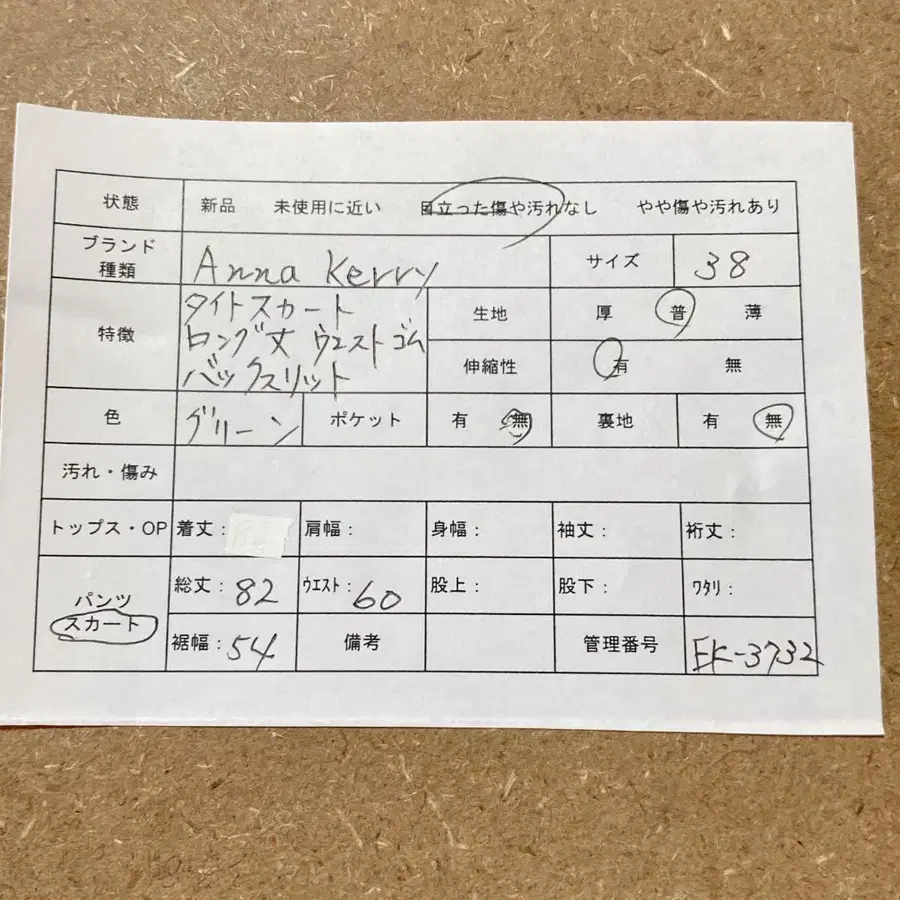 状態 新品 未使用に近い 目立った傷や汚れなし やや傷や汚れあり
ブランド
種類 Anna Kerry サイズ 38
特徴 タイトスカート
ロング丈 ウエストゴム
バックスリット
生地 厚 普 薄
伸縮性 有 無
色 グリーン ポケット 有 無 裏地 有 無
汚れ・傷み
トップス・OP 着丈: 肩幅: 身幅: 袖丈: 裄丈:
パンツ
スカート
総丈:82 ウエスト:60 股上: 股下: ワタリ:
裾幅:54 備考 管理番号 EK-3732